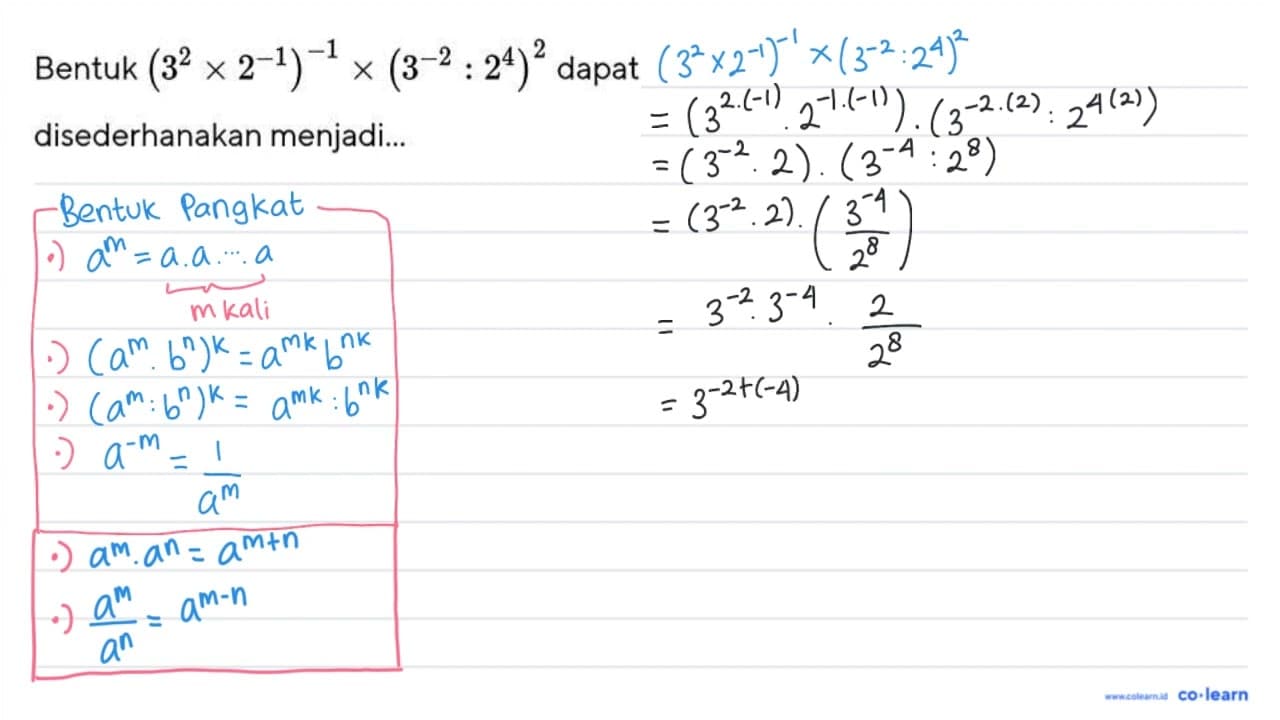 Bentuk (3² × 2⁻¹)⁻¹ × (3⁻² : 2⁴)² dapat
disederhanakan menjadi...
Bentuk Pangkat
•) aᵐ = a.a.⋯.a
m kali
•) (aᵐ. bⁿ)ᵏ = aᵐᵏ bⁿᵏ
•) (aᵐ : bⁿ)ᵏ = aᵐᵏ : bⁿᵏ
•) a⁻ᵐ = 1/aᵐ
•) aᵐ.aⁿ = aᵐ⁺ⁿ
•) aᵐ/aⁿ = aᵐ⁻ⁿ
(3² × 2⁻¹)⁻¹ × (3⁻² : 2⁴)²
= (3^{2.(-1)} . 2^{-1.(-1)}) . (3^{-2.(2)} : 2^{4(2)})
= (3⁻² . 2) . (3⁻⁴ : 2⁸)
= (3⁻² . 2) . (3⁻⁴/2⁸)
= 3⁻² . 3⁻⁴ . 2/2⁸
= 3^{-2+(-4)}
www.colearn.id co·learn